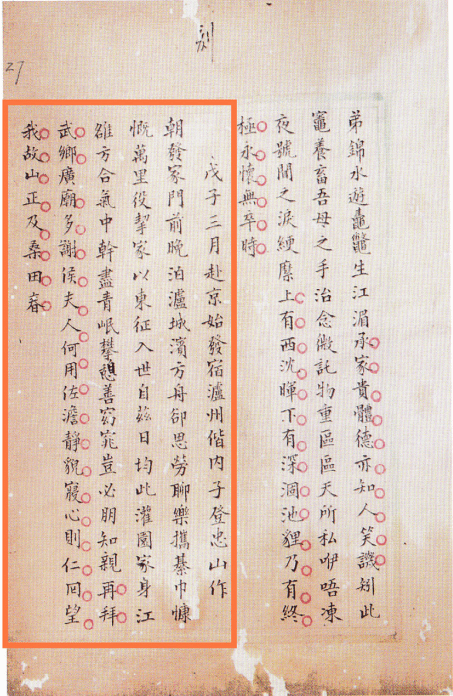 刻
27
弟錦水遊鼉鼊生江湄承家貴體德亦知人笑譏矧此
鼉養畜吾母之手治念微託物重區區天所私咿唔凍
夜號聞之淚綆縻上有西沈暉下有深涸池貍乃有終
極永懷無卒時
戊子三月赴京始發宿瀘州偕內子登忠山作
朝發家門前晚泊瀘城濱方舟卻思勞聊樂攜綦巾慷
慨萬里役挈家以東征入世自茲日均此灌園家身江
雒方合氣中幹盡青岷攀憩善窈窕豈必朋知親再拜
武鄉廣廟多謝侯夫人何用佐澹靜貌寢心則仁回望
我故山正及桑田春